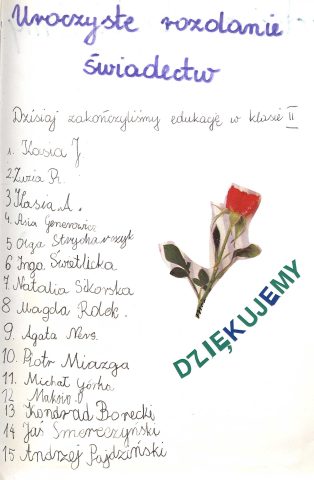 Uroczyste rozdanie
świadectw
Dzisiaj zakończyliśmy edukację w klasie II
1. Kasia J
2. Zuzia R.
3 Kasia A.
4. Asia Generowicz
5 Olga Strycharczyk
6 Inga Świetlicka
7. Natalia Sikorska
8 Magda Rolek.
9. Agata Nevs.
10. Piotr Miazga
11. Michał Górka
12 Maksio
13 Kondrad Borecki
14 Jaś Smereczyński
15 Andrzej Pajdziński
DZIĘKUJEMY